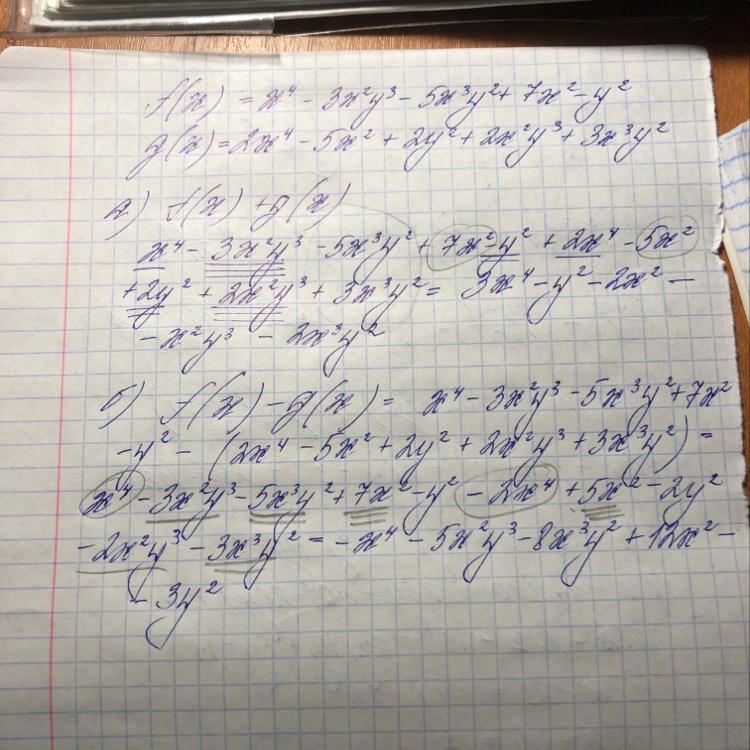 f(x) = x⁴ - 3x²y³ - 5x³y² + 7x² - y²
g(x) = 2x⁴ - 5x² + 2y² + 2x²y³ + 3x³y²
а) f(x) + g(x)
x⁴ - 3x²y³ - 5x³y² + 7x² - y² + 2x⁴ - 5x²
+ 2y² + 2x²y³ + 3x³y² = 3x⁴ - y² - 2x² -
- x²y³ - 2x³y²
б) f(x) - g(x) = x⁴ - 3x²y³ - 5x³y² + 7x²
- y² - (2x⁴ - 5x² + 2y² + 2x²y³ + 3x³y²) =
x⁴ - 3x²y³ - 5x³y² + 7x² - y² - 2x⁴ + 5x² - 2y²
- 2x²y³ - 3x³y² = - x⁴ - 5x²y³ - 8x³y² + 12x² -
- 3y²